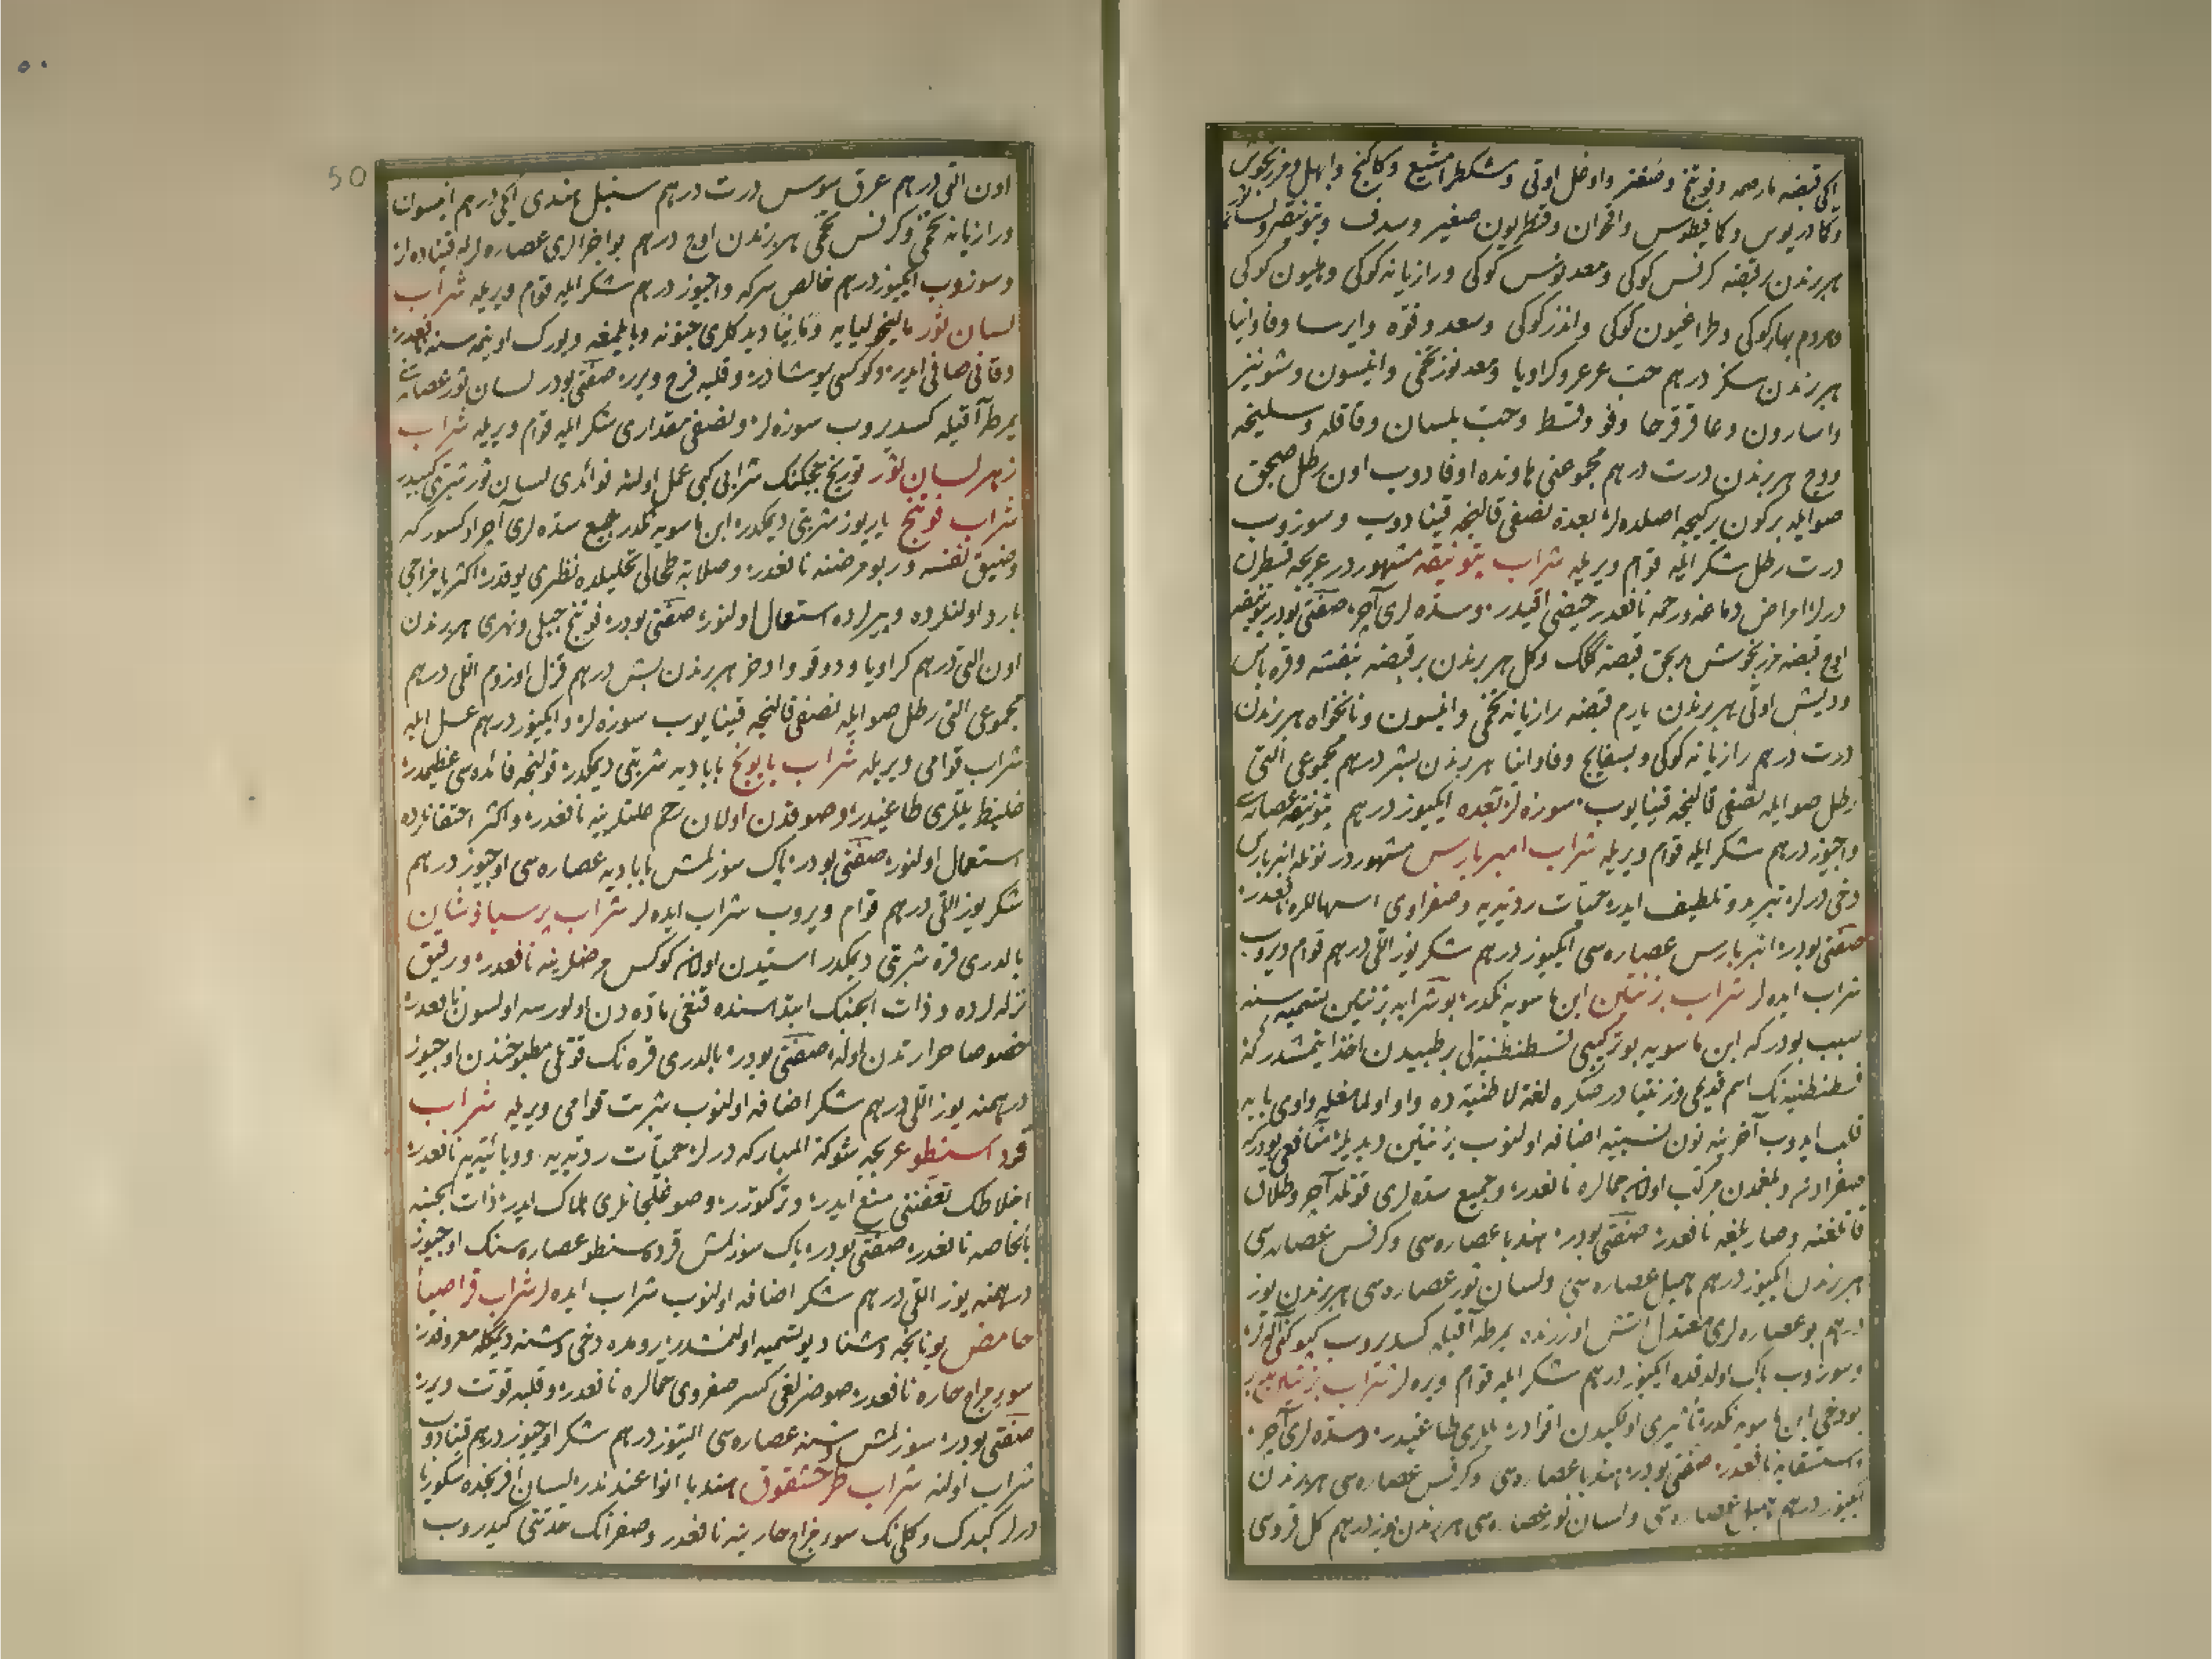 ایکی قبضه مارصمه و فوتنج و صعتر و اوخل اوتی و مشکطرامشیع و کاکنج و ابهل و مرزنجوش
و کمادریوس و کمافیطوس و اقحوان و قنطریون صغیر و سدف و بتونیقه و لسان ثور
هر برندن بر قبضه کرفس کوکی و معدنوس کوکی و رازیانه کوکی و هلیون کوکی
و مروم بهار کوکی و طراغیون کوکی و اذخر کوکی و سعد و فوه و ایرسا و فاوانیا
هر برندن سکز درهم حب عرعر و کراویا و معدنوز تخمی و انیسون و شونیز
و اسارون و عاقرقرحا و فو و قسط و حب بلسان و قاقله و سلیخه
و وج هر برندن درت درهم مجموعنی هاونده اوفادوب اون رطل صیجق
صو ایله بر کون بر کیجه اصلده لر بعده نصفی قالنجه قینادوب و سوزوب
درت رطل شکر ایله قوام ویریله شراب بتونیقه مشهوردر عربجه قسطرن
درلر امراض دماغه و رحمه نافعدر حیضی اقیدر و سده لری آچر صفتی بودر بتونیقه
اوج قبضه مرزنجوش بر بجق قبضه ککک و کل هر برندن بر قبضه بنفشه و قره باش
و دیش اوتی هر برندن یارم قبضه رازیانه تخمی و انیسون و نانخواه هر برندن
درت درهم رازیانه کوکی و بسفایج و فاوانیا هر برندن بشر درهم مجموعی التی
رطل صو ایله نصفی قالنجه قینایوب سوزه لر بعده ایکیوز درهم بتونیقه عصاره سی
و اوجیوز درهم شکر ایله قوام ویریله شراب امیر بارس مشهوردر بونله انبر بارس
دخی درلر تبرید و تلطیف ایدر حمیات ردیه یه و صفراوی اسهاللره نافعدر
صفتی بودر انبر بارس عصاره سی ایکیوز درهم شکر یوز اللی درهم قوام ویروب
شراب ایده لر شراب بزنتین ابن ماسویه نکدر بو شرابه بزنتین تسمیه سنه
سبب بودر که ابن ماسویه بو ترکیبی قسطنطنیه لی بر طبیبدن اخذ ایتمشدر که
قسطنطنیه نک اسم قدیمی وزنتیا در صکره لغة لاطنیه ده واو اولمامغله واوی بایه
قلب ایدوب آخرینه نون نسبیه اضافه اولنوب بزنتین دیدیلر منافعی بودر که
صفرادن و بلغمدن مرکب اولان حمالره نافعدر و جمیع سده لری قوتله آچر و طلاق
قانلغنه و صاریلغه نافعدر صفتی بودر هندبا عصاره سی و کرفس عصاره سی
هر برندن ایکیوز درهم همیل عصاره سی و لسان ثور عصاره سی هر برندن یوز
درهم بو عصاره لری معتدل آتش اوزرنده یمرطه آقیله کسدیروب کپوکنی آله لر
و سوزوب پاک اولدقده ایکیوز درهم شکر ایله قوام ویره لر شراب بزنتین
بو دخی ابن ماسویه نکدر تأثیری اولکیدن اقوادر یللری طاغیدر و سده لری آچر
و استسقایه نافعدر صفتی بودر هندبا عصاره سی و کرفس عصاره سی هر برندن
ایکیوز درهم عصاره سی و لسان ثور عصاره سی هر برندن یوز درهم کل قروسی
50
اون التی درهم عرق سوس درت درهم سنبل هندی ایکی درهم انیسون
و رازیانه تخمی و کرفس تخمی هر برندن اوج درهم بو اجزالری عصاره لرله قیناده لر
و سوزوب ایکیوز درهم خالص سرکه و اوجیوز درهم شکر ایله قوام ویریله شراب
لسان ثور مالیخولیایه و مانیا دیدکلری جنونه و بایلمغه و یورک اوینمه سنه نافعدر
و قانی صافی ایدر و کوکسی یوشادر و قلبه فرح ویرر صفتی بودر لسان ثور عصاره سی
یمرطه آقیله کسدیروب سوزه لر و نصفی مقداری شکر ایله قوام ویریله شراب
زهر لسان ثور توریخ چچکنک شرابی کبی عمل اولنه فوائدی لسان ثور شربتی کبیدر
شراب فوتنج یارپوز شربتی دیمکدر ابن ماسویه نکدر جمیع سده لری آچر اوکسورکه
و ضیق نفسه و ربو مرضنه نافعدر و صلابه طحالی تحلیلده نظیری یوقدر اکثریا مزاجی
بارد اولنلرده و پیرلرده استعمال اولنور صفتی بودر فوتنج جبلی و نهری هر برندن
اون التی درهم کراویا و دوقو و اذخر هر برندن بش درهم قزل اوزوم اللی درهم
مجموعی التی رطل صو ایله نصفی قالنجه قینایوب سوزه لر و ایکیوز درهم عسل ایله
شراب قوامی ویریله شراب بابونج بابادیه شربتی دیمکدر قولنجه فائده سی عظیمدر
غلیظ یللری طاغیدر و صوقدن اولان رحم علتلرینه نافعدر و اکثر احتقانلرده
استعمال اولنور صفتی بودر پاک سوزلمش بابادیه عصاره سی اوجیوز درهم
شکر یوز اللی درهم قوام ویروب شراب ایده لر شراب پرسیاوشان
بالدری قره شربتی دیمکدر اسیتدن اولان کوکس مرضلرینه نافعدر و رقیق
نزله لرده و ذات الجنبک ابتداسنده قنغی ماده دن اولورسه اولسون نافعدر
خصوصا حرارتدن اوله صفتی بودر بالدری قره نک قوتلی مطبوخندن اوجیوز
درهمنه یوز اللی درهم شکر اضافه اولنوب شربت قوامی ویریله شراب
قرد استطو عربجه شوکة المبارکه درلر حمیات ردیه یه و وبائیه یه نافعدر
اخلاطک تعفننی منع ایدر و ترلتور و صوغلجانلری هلاک ایدر ذات الجنبه
بالخاصه نافعدر صفتی بودر پاک سوزلمش قردسنطو عصاره سنک اوجیوز
درهمنه یوز اللی درهم شکر اضافه اولنوب شراب ایده لر شراب قراصیا
حامض یونانجه وشنا دیو تسمیه اولنمشدر رومده دخی وشنه دیمکله معروفدر
سوء مزاج حاره نافعدر صوضزلغی کسر صفروی حمالره نافعدر و قلبه قوت ویرر
صفتی بودر سوزلمش وشنه عصاره سی التیوز درهم شکر اوجیوز درهم قینادوب
شراب اولنه شراب طرخشقوق هندبا انواعندندر لسان افرنجده شکوریا
درلر کبدک و کلی نک سوء مزاج حارینه نافعدر و صفرانک حدتنی کیدروب